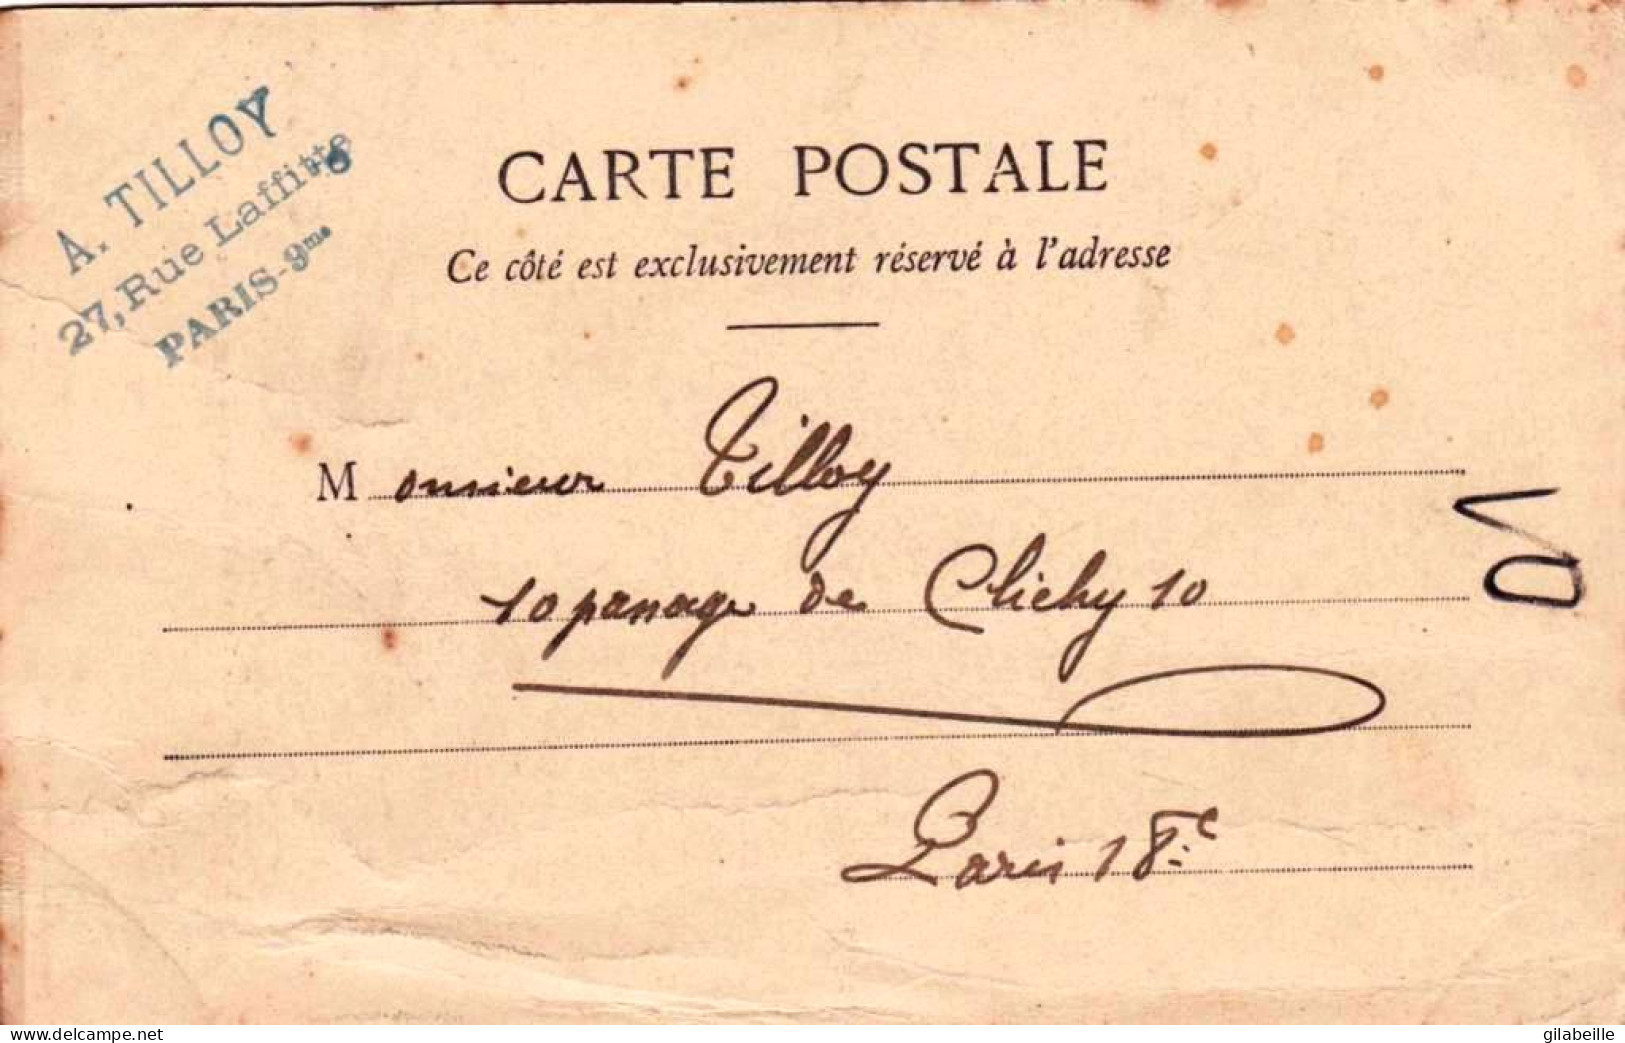 A. TILLOY
27, Rue Laffitte
PARIS-9me
CARTE POSTALE
Ce côté est exclusivement réservé à l'adresse
Monsieur Tilloy
10 passage de Clichy 10
Paris 18e
delcampe.net
gilabeille